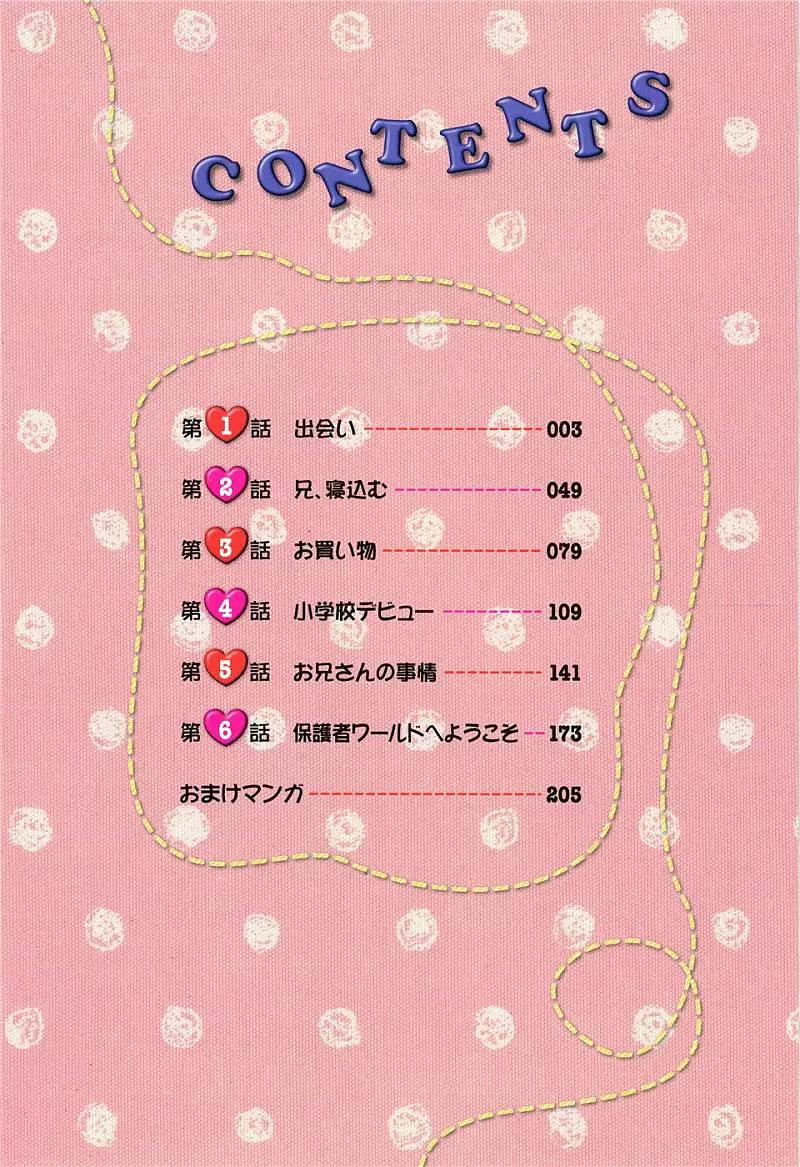 CONTENTS
第1話 出会い 003
第2話 兄、寝込む 049
第3話 お買い物 079
第4話 小学校デビュー 109
第5話 お兄さんの事情 141
第6話 保護者ワールドへようこそ 173
おまけマンガ 205